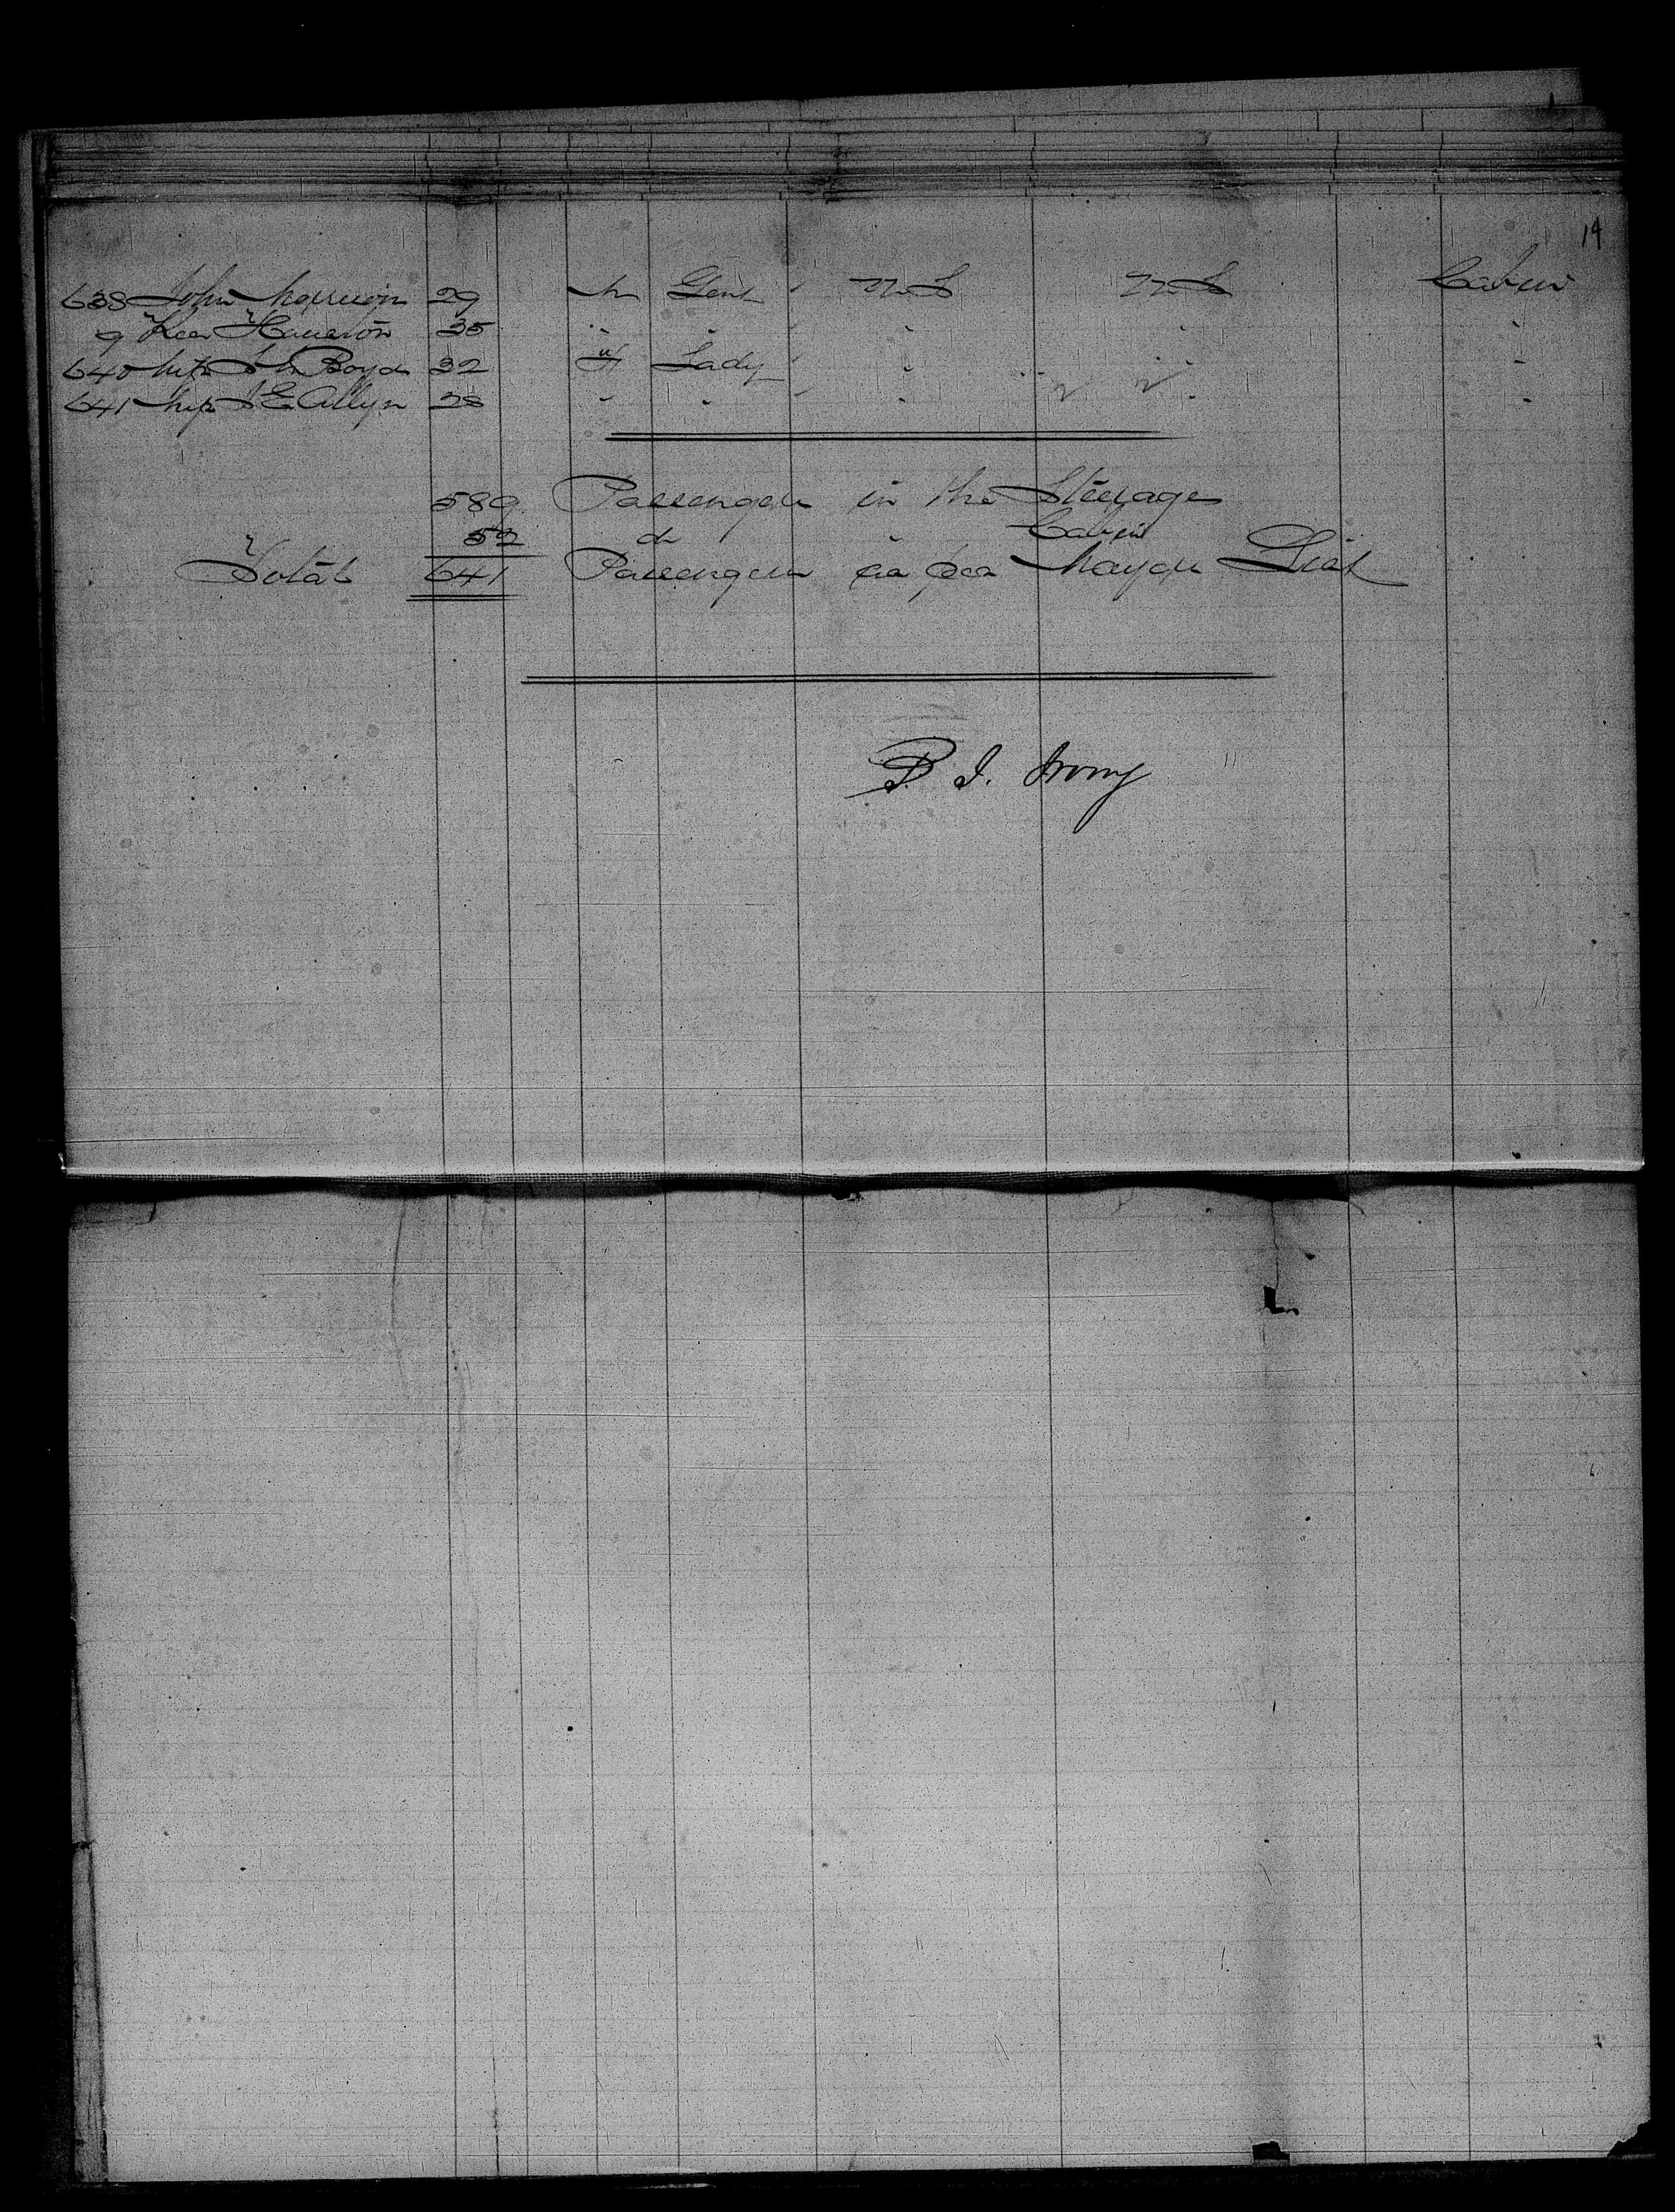 14
638 John Morrison 29 m Gent U S U S Cabin
9 Houston 35 " " " " "
640 Mrs Boyd 32 f Lady " " "
641 Mrs J E Allyn 28 " " " " "
589 Passengers in the Steerage
52 do " Cabin
Total 641 Passengers as per List